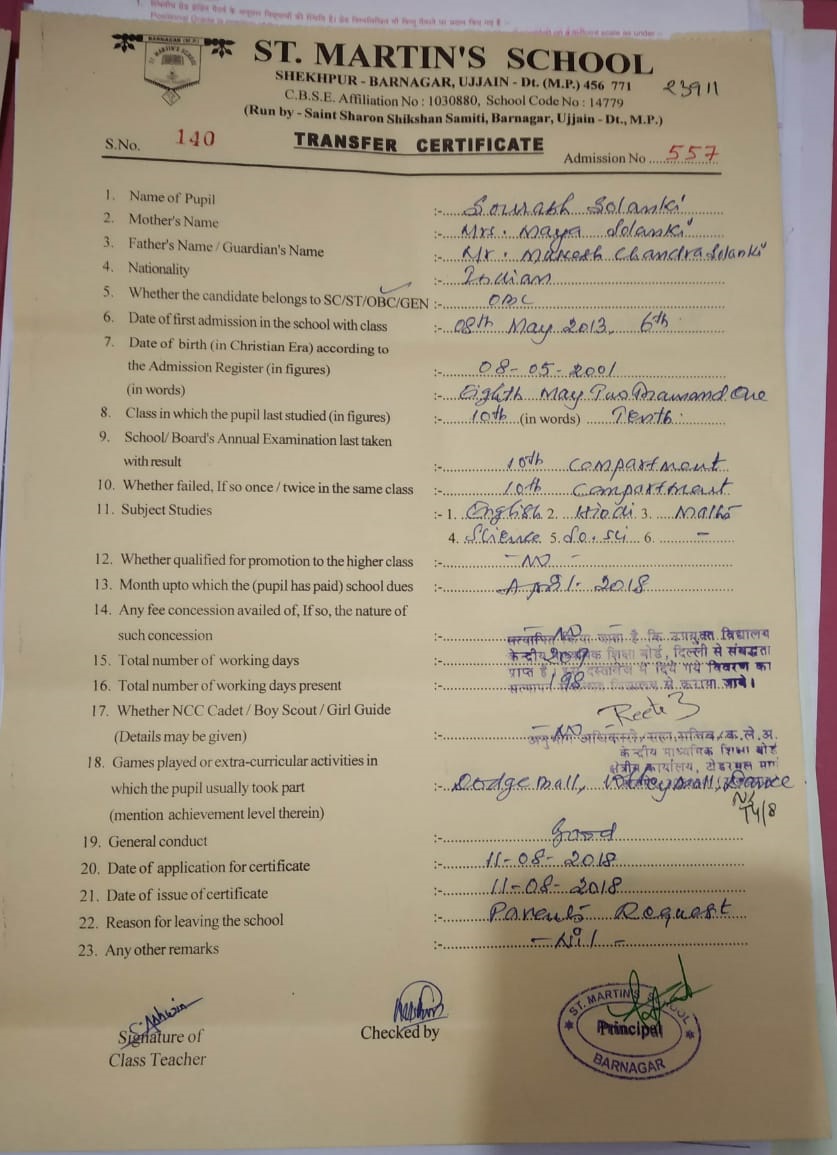 ST. MARTIN'S SCHOOL
SHEKHPUR - BARNAGAR, UJJAIN - Dt. (M.P.) 456 771
23911
C.B.S.E. Affiliation No : 1030880, School Code No : 14779
(Run by - Saint Sharon Shikshan Samiti, Barnagar, Ujjain - Dt., M.P.)
S.No. 140 TRANSFER CERTIFICATE Admission No ..... 557
1. Name of Pupil :- Sourabh Solanki
2. Mother's Name :- Mrs. Maya Solanki
3. Father's Name / Guardian's Name :- Mr. Mukesh Chandra Solanki
4. Nationality :- Indian
5. Whether the candidate belongs to SC/ST/OBC/GEN :- OBC
6. Date of first admission in the school with class :- 08th May 2013, 6th
7. Date of birth (in Christian Era) according to
the Admission Register (in figures) :- 08-05-2001
(in words) :- Eighth May Two Thousand One
8. Class in which the pupil last studied (in figures) :- 10th (in words) Tenth
9. School/ Board's Annual Examination last taken
with result :- 10th Compartment
10. Whether failed, If so once / twice in the same class :- 10th Compartment
11. Subject Studies :- 1. English 2. Hindi 3. Maths
4. Science 5. So. sci 6. -
12. Whether qualified for promotion to the higher class :- - NO -
13. Month upto which the (pupil has paid) school dues :- April. 2018
14. Any fee concession availed of, If so, the nature of
such concession :- - NO -
सत्यापित किया जाता है कि उपयुक्त विद्यालय
15. Total number of working days :-
केन्द्रीय माध्यमिक शिक्षा बोर्ड, दिल्ली से संबद्धता
प्राप्त है, दस्तावेज में दिये गये विवरण का
16. Total number of working days present :- 198
सत्यापन विद्यालय से कराया जावे।
17. Whether NCC Cadet / Boy Scout / Girl Guide
(Details may be given) :- - NO -
केन्द्रीय माध्यमिक शिक्षा बोर्ड
क्षेत्रीय कार्यालय,
18. Games played or extra-curricular activities in
which the pupil usually took part :- Dodge ball, Dance
(mention achievement level therein)
19. General conduct :- Good
20. Date of application for certificate :- 11-08-2018
21. Date of issue of certificate :- 11-08-2018
22. Reason for leaving the school :- Parents Request
23. Any other remarks :- - Nil -
Signature of
Class Teacher
Checked by
ST. MARTIN'S SCHOOL
Principal
BARNAGAR